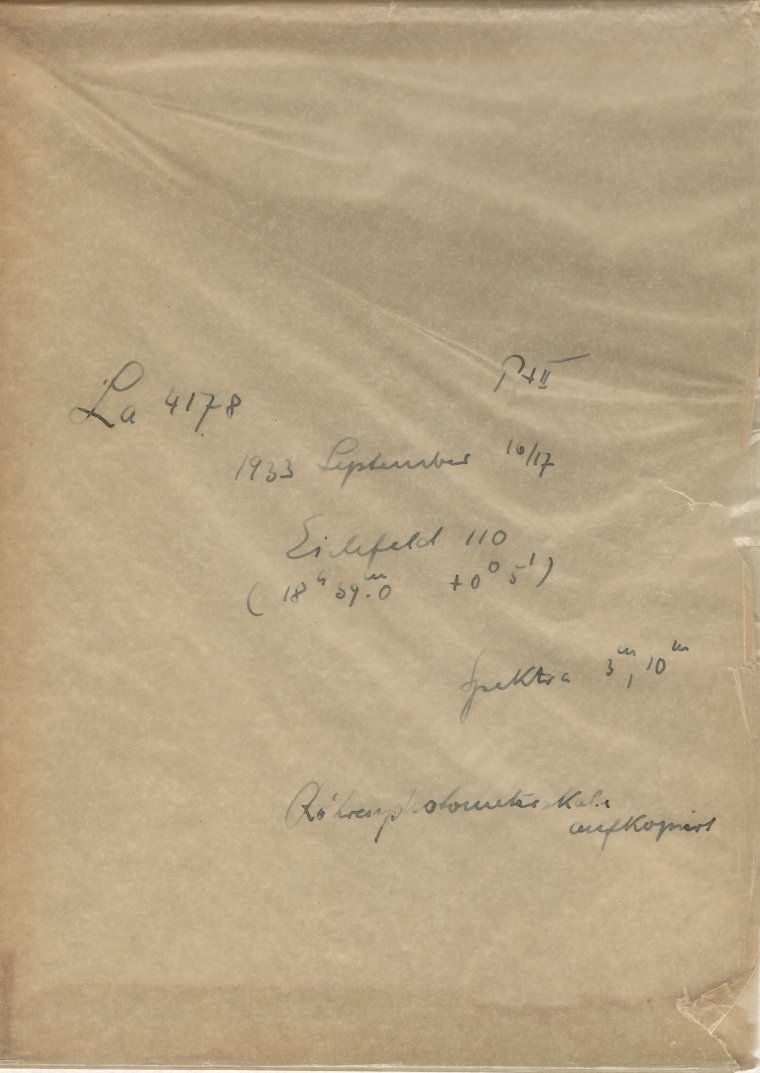 La 4178 P+II
1933 September 16/17
Eichfeld 110
(18ʰ 39ᵐ.0 +0° 5')
Spektra 3ᵐ, 10ᵐ
Röhrenphotometerskala
aufkopiert